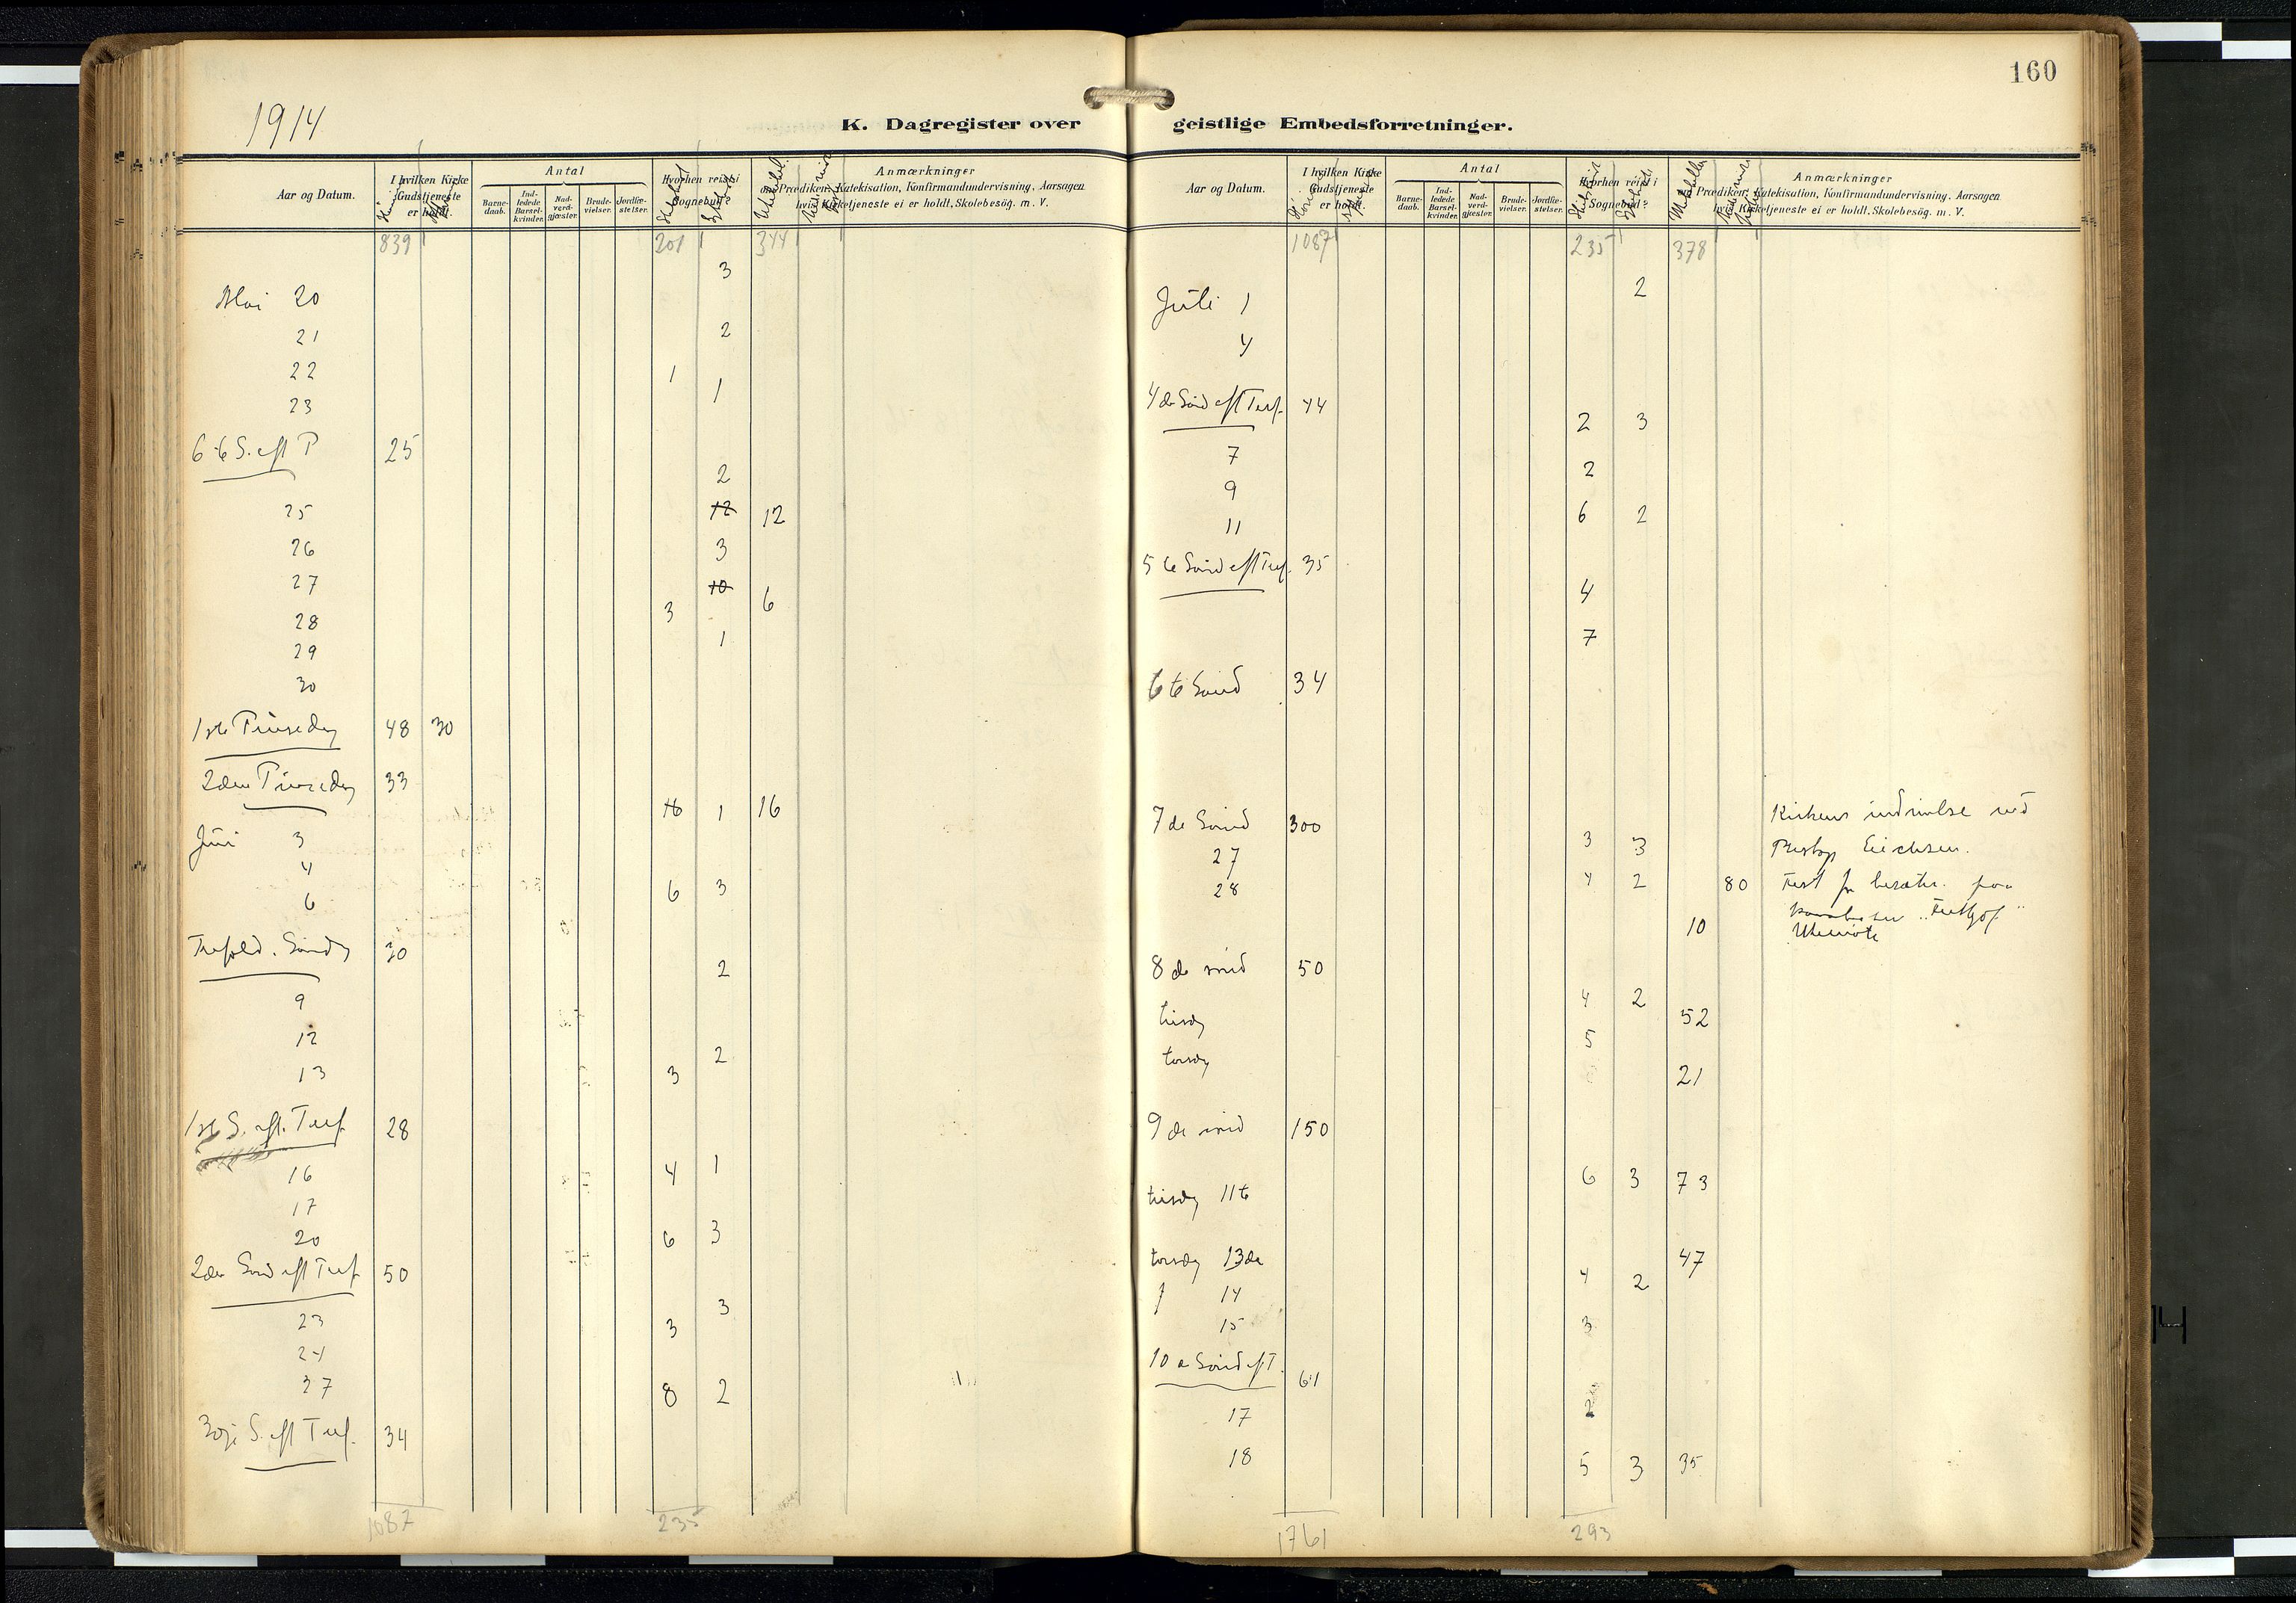 160
1914
K. Dagregister over geistlige Embedsforretninger.
Aar og Datum.
I hvilken Kirke Gudstjeneste er holdt.
Antal
Barne-daab.
Ind-ledede Barsel-kvinder.
Nad-verd-gjæster.
Brude-vielser.
Jordfæ-stelser.
Hvorhen reist i Sognebud?
Anmærkninger
om Prædiken, Katekisation, Konfirmandundervisning, Aarsagen
hvis Kirketjeneste ei er holdt, Skolebesög. m. V.
839 201 344
3
Mai 20
2
21
22 1
1
23
6te S. eft P 25
2
25 12 12
26 3
27 10
3 6
28
1
29
30
1ste Pinsedag 48 30
2den Pinsedag 33
16 1 16
Juni 3
4
6 3
6
Trefold. Søndag 30
2
9
12
2
13 3
1ste S. eft. Tref. 28
4 1
16
17
20 6 3
2den Sønd eft Tref. 50
3
23 3
24
27 8 2
3dje S. eft Tref. 34
1087 235
Aar og Datum.
I hvilken Kirke Gudstjeneste er holdt.
Antal
Barne-daab.
Ind-ledede Barsel-kvinder.
Nad-verd-gjæster.
Brude-vielser.
Jordfæ-stelser.
Hvorhen reist i Sognebud?
Anmærkninger
om Prædiken, Katekisation, Konfirmandundervisning, Aarsagen
hvis Kirketjeneste ei er holdt, Skolebesög. m. V.
1087 235 378
2
Juli 1
4
4de Sønd eft Tref. 44
2 3
7
2
9
6 2
11
5te Sønd eft Tref. 35
4
7
6te Sønd 34
7de Sønd 300 Kirkens indvielse ved
27 3 3 Eriksen.
28 4 2 80 Fest for besætn. paa
"Frithjof"
10 Utemøte
8de sønd 50
4 2
tirsdag 52
5
torsdag
21
9de sønd 150
6 3 73
tirsdag 11te
torsdag 13de 47
4 2
14
15 3
10e Sønd eft T. 61
17 2
18 5 3 35
1761 293